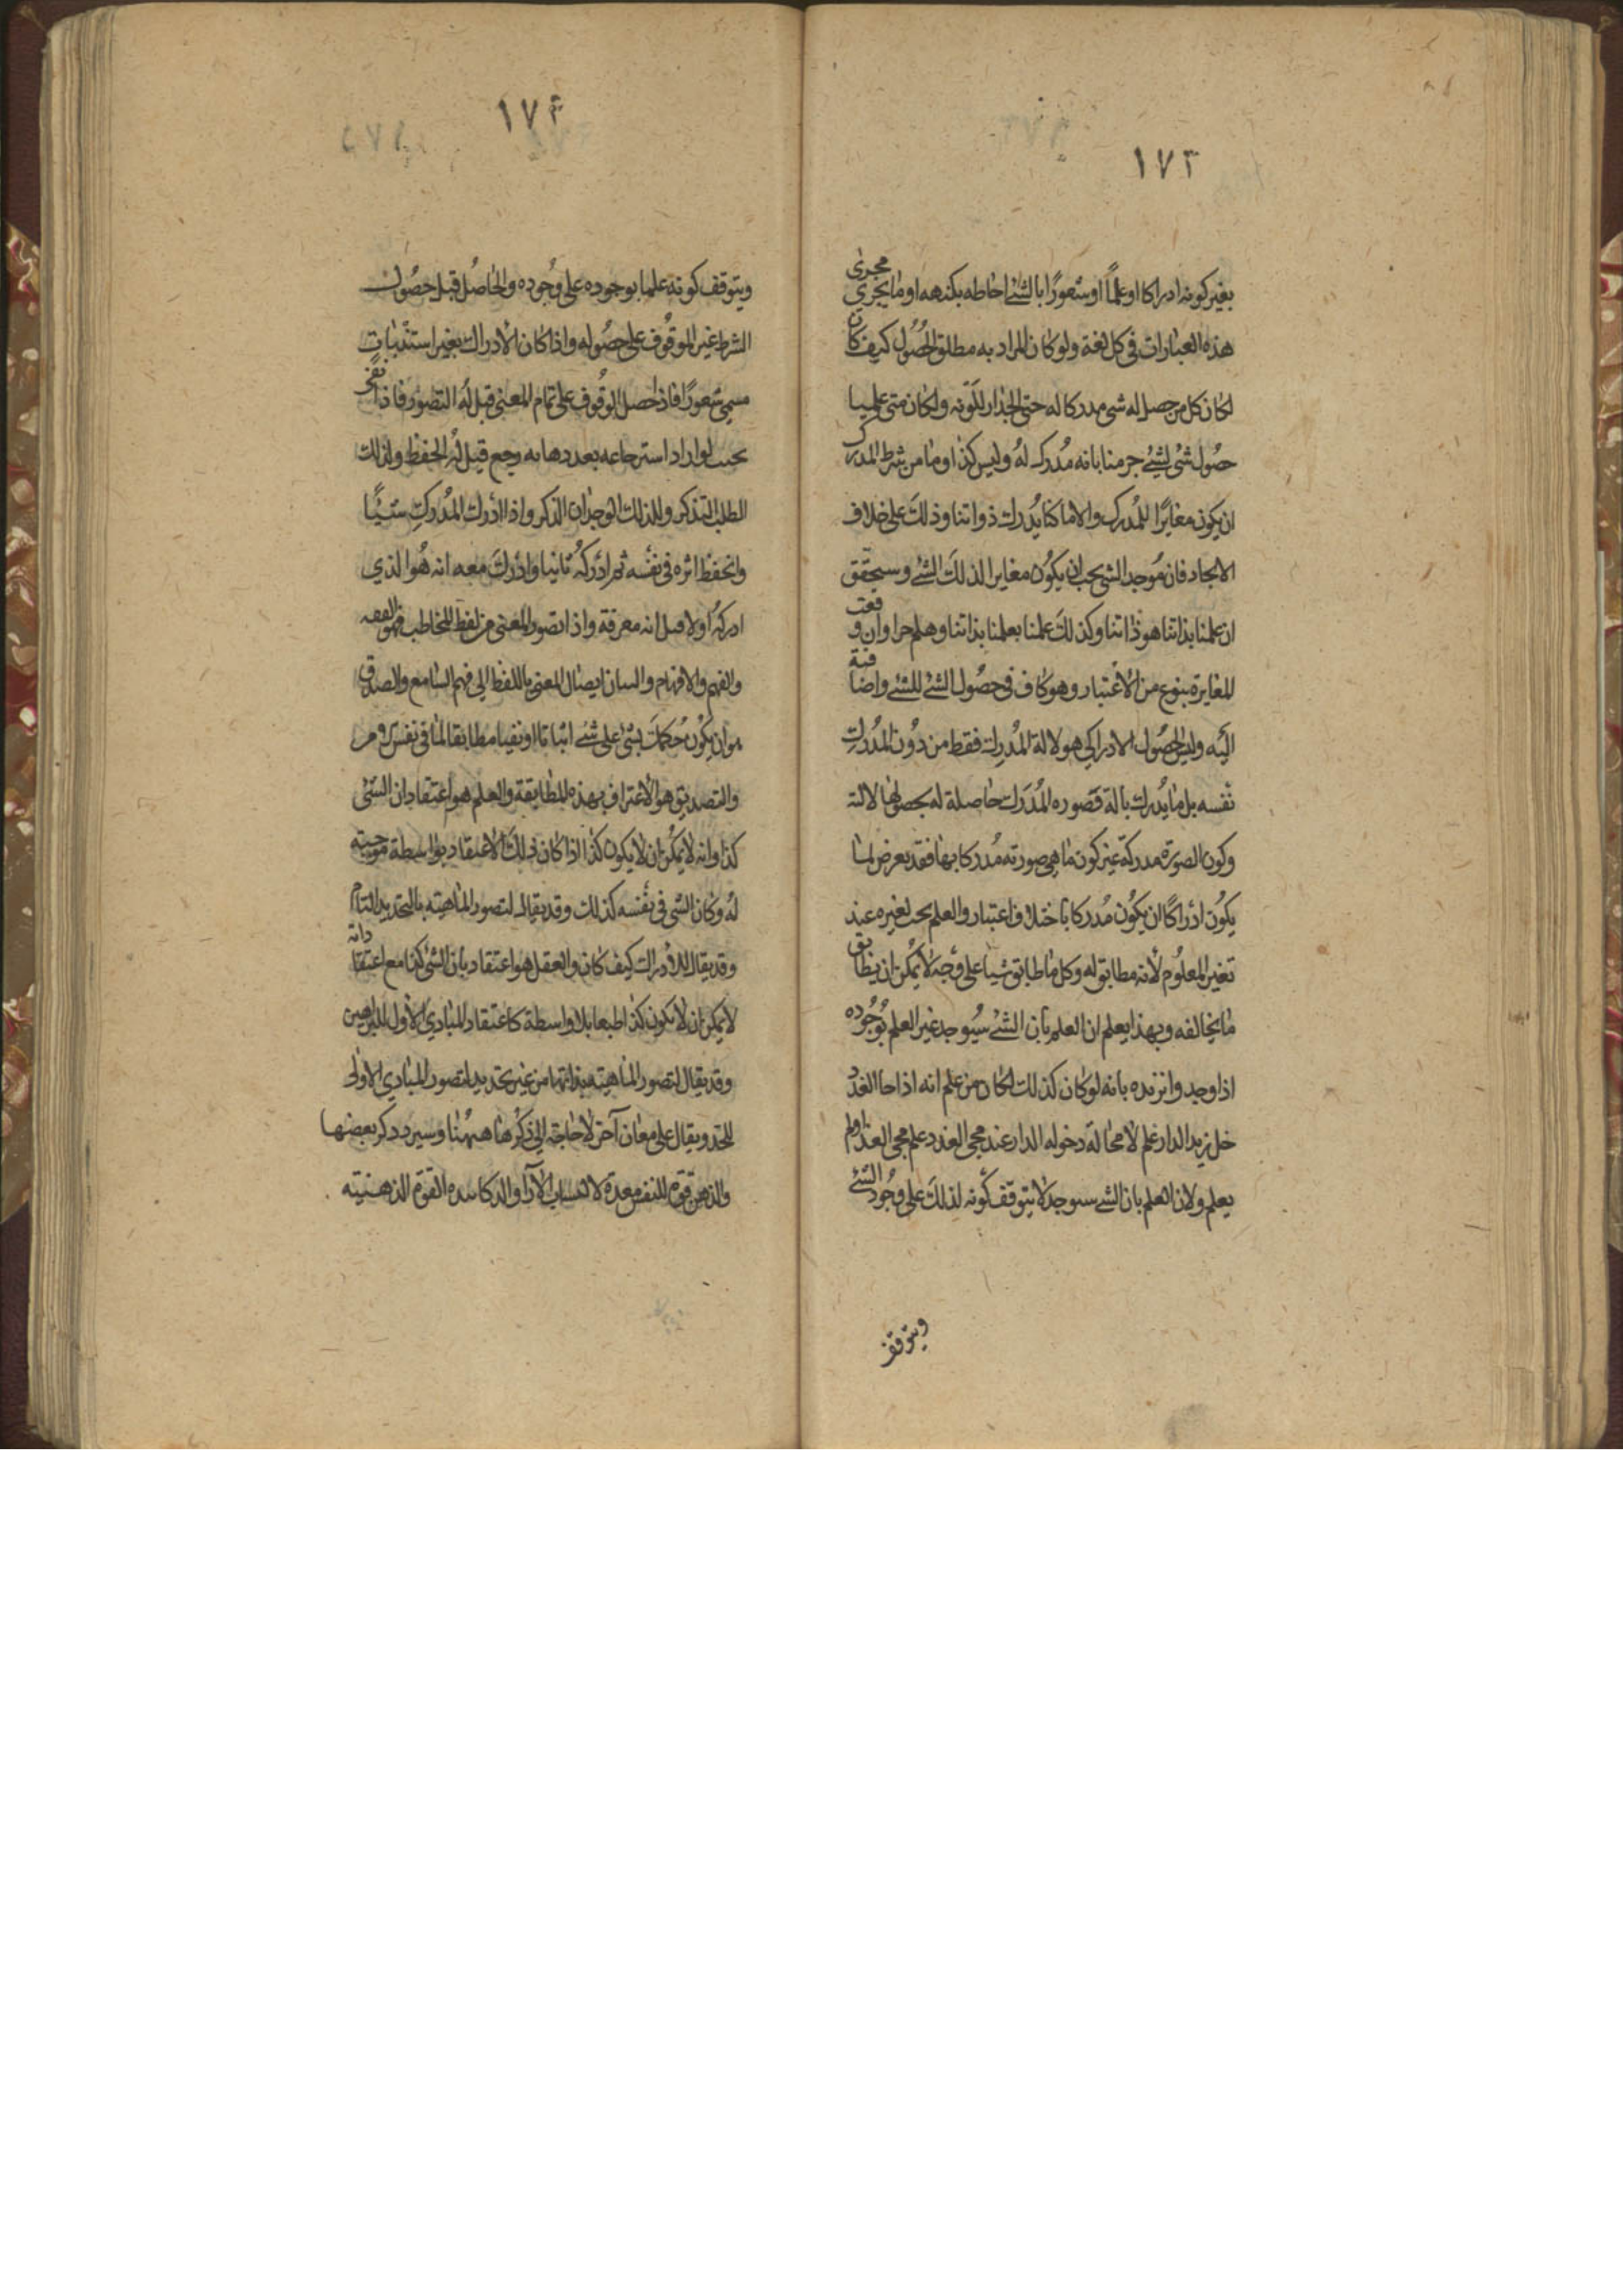 ١٧٣
بغير كونه ادراكا او علماً او شعورًا بالشئ احاطه بكنهه او ما يجري مجرى
هذه العبارات في كل لغة ولو كان المراد به مطلق الحصُول كيف كان
لكان كل من حصل له شي مدركا له حتى الجدار للونه ولكان متى علمنا
حصُول شئ لشئ جزمنا بانه مُدرك لهُ وليس كذا وما من شرط المدرك
ان يكون مغايرًا للمُدرك والا ما كنا يُدرك ذواتنا وذلك على خلاف
الايجاد فان مُوجد الشي يجب ان يكوُن مغايرا لذلكَ الشئ وسيحقّق
ان علمنا بذاتنا هو ذاتنا وكذلكَ علمنا بعلمنا بذاتنا وهلم جرا وان وقعت
المغايرة بنوع من الاعتبار وهو كاف في حصُول الشئ للشئ واضافية
اليَه وليس الحصُول الادراكي هو لالة المُدرك فقط من دوُن المُدرك
نفسه بل ما يُدرك بالة فصوره المُدرَك حاصلة له بحصولها لالته
وكون الصورَة مدركة غير كون ما هي صورته مُدركا بها فقد يعرض لما
يكوُن ادرَاكًا ان يكوُن مُدركا باختلاف اعتبار والعلم يجب تغيره عند
تغير المعلوُم لأنه مطابق له وكل ما طابق شيا على وَجه لا يمكن ان يطابق
ما يخالفه وبهذا يعلم ان العلم بان الشئ سيُوجد غير العلم بوُجوُده
اذا وجد وانزيده بانه لو كان كذلك لكان من علم انه اذا جا الغد د
خل زيد الدار علم لا محالة دخوله الدار عند مجي الغد د علم مجي الغد اولم
يعلم ولان العلم بان الشئ سيوجد لا يتوقف كونه لذلكَ على وجُود الشئ
ويتوقف
١٧٤
ويتوقف كونه علما بوجوده على وُجوده والحاصُل قبل حصُول
الشرط غير الموقوُف على حصُوله واذا كان الادراك بغير استثبات
سمي شعورًا فاذا حصل الوقُوف على تمام المعنى قيل لهُ التصور فاذا بقي
بحيث لو اراد استرجاعه بعد دهابه رجع قيل لهُ الحفظ ولذلك
الطلب التذكر ولذلك الوجدان الذكر واذا ادُرك المُدرك شيئًا
وانحفظ اثره في نفسه ثم ادركهُ ثانيا وادرك معه انه هُو الذي
ادركهُ اولا قيل انه معرفة واذا تصور المعنى من لفظ المخاطب فهو الفقه
والفهم والافهام والبيان ايصال المعنى باللفظ الى فهم السامع والصدق
هوان يكوُن حُكمك بشئ على شئ اثباتا او نفيا مطابقا لما في نفس الامر
والتصديق هو الاعتراف بهذه المطابقة والعلم هو اعتقاد ان الشئ
كذا وانه لا يمكن ان لا يكون كذا اذا كان ذلكَ الاعتقاد بواسطة موجبته
لهُ وكان الشي في نفسه كذلك وقد يقال لتصور الماهيته بالتحديد التام
وقد يقال للادراك كيف كان والعقل هو اعتقاد بان الشي كذا مع اعتقا دانه
لا يمكن ان لا يكون كذا طبعا بلا واسطة كاعتقاد المبادي الاول للبراهين
وقد يقال لتصور الماهيته بذاتها من غير تحديد لتصور المبادي الاولى
للحد ويقال على معان آخر لا حاجة الى ذكرها ههُنا وسيرد ذكر بعضها
والذهن قوة للنفس معدة لاكتساب الآراَ والذكا شده القوَة الذهنيته